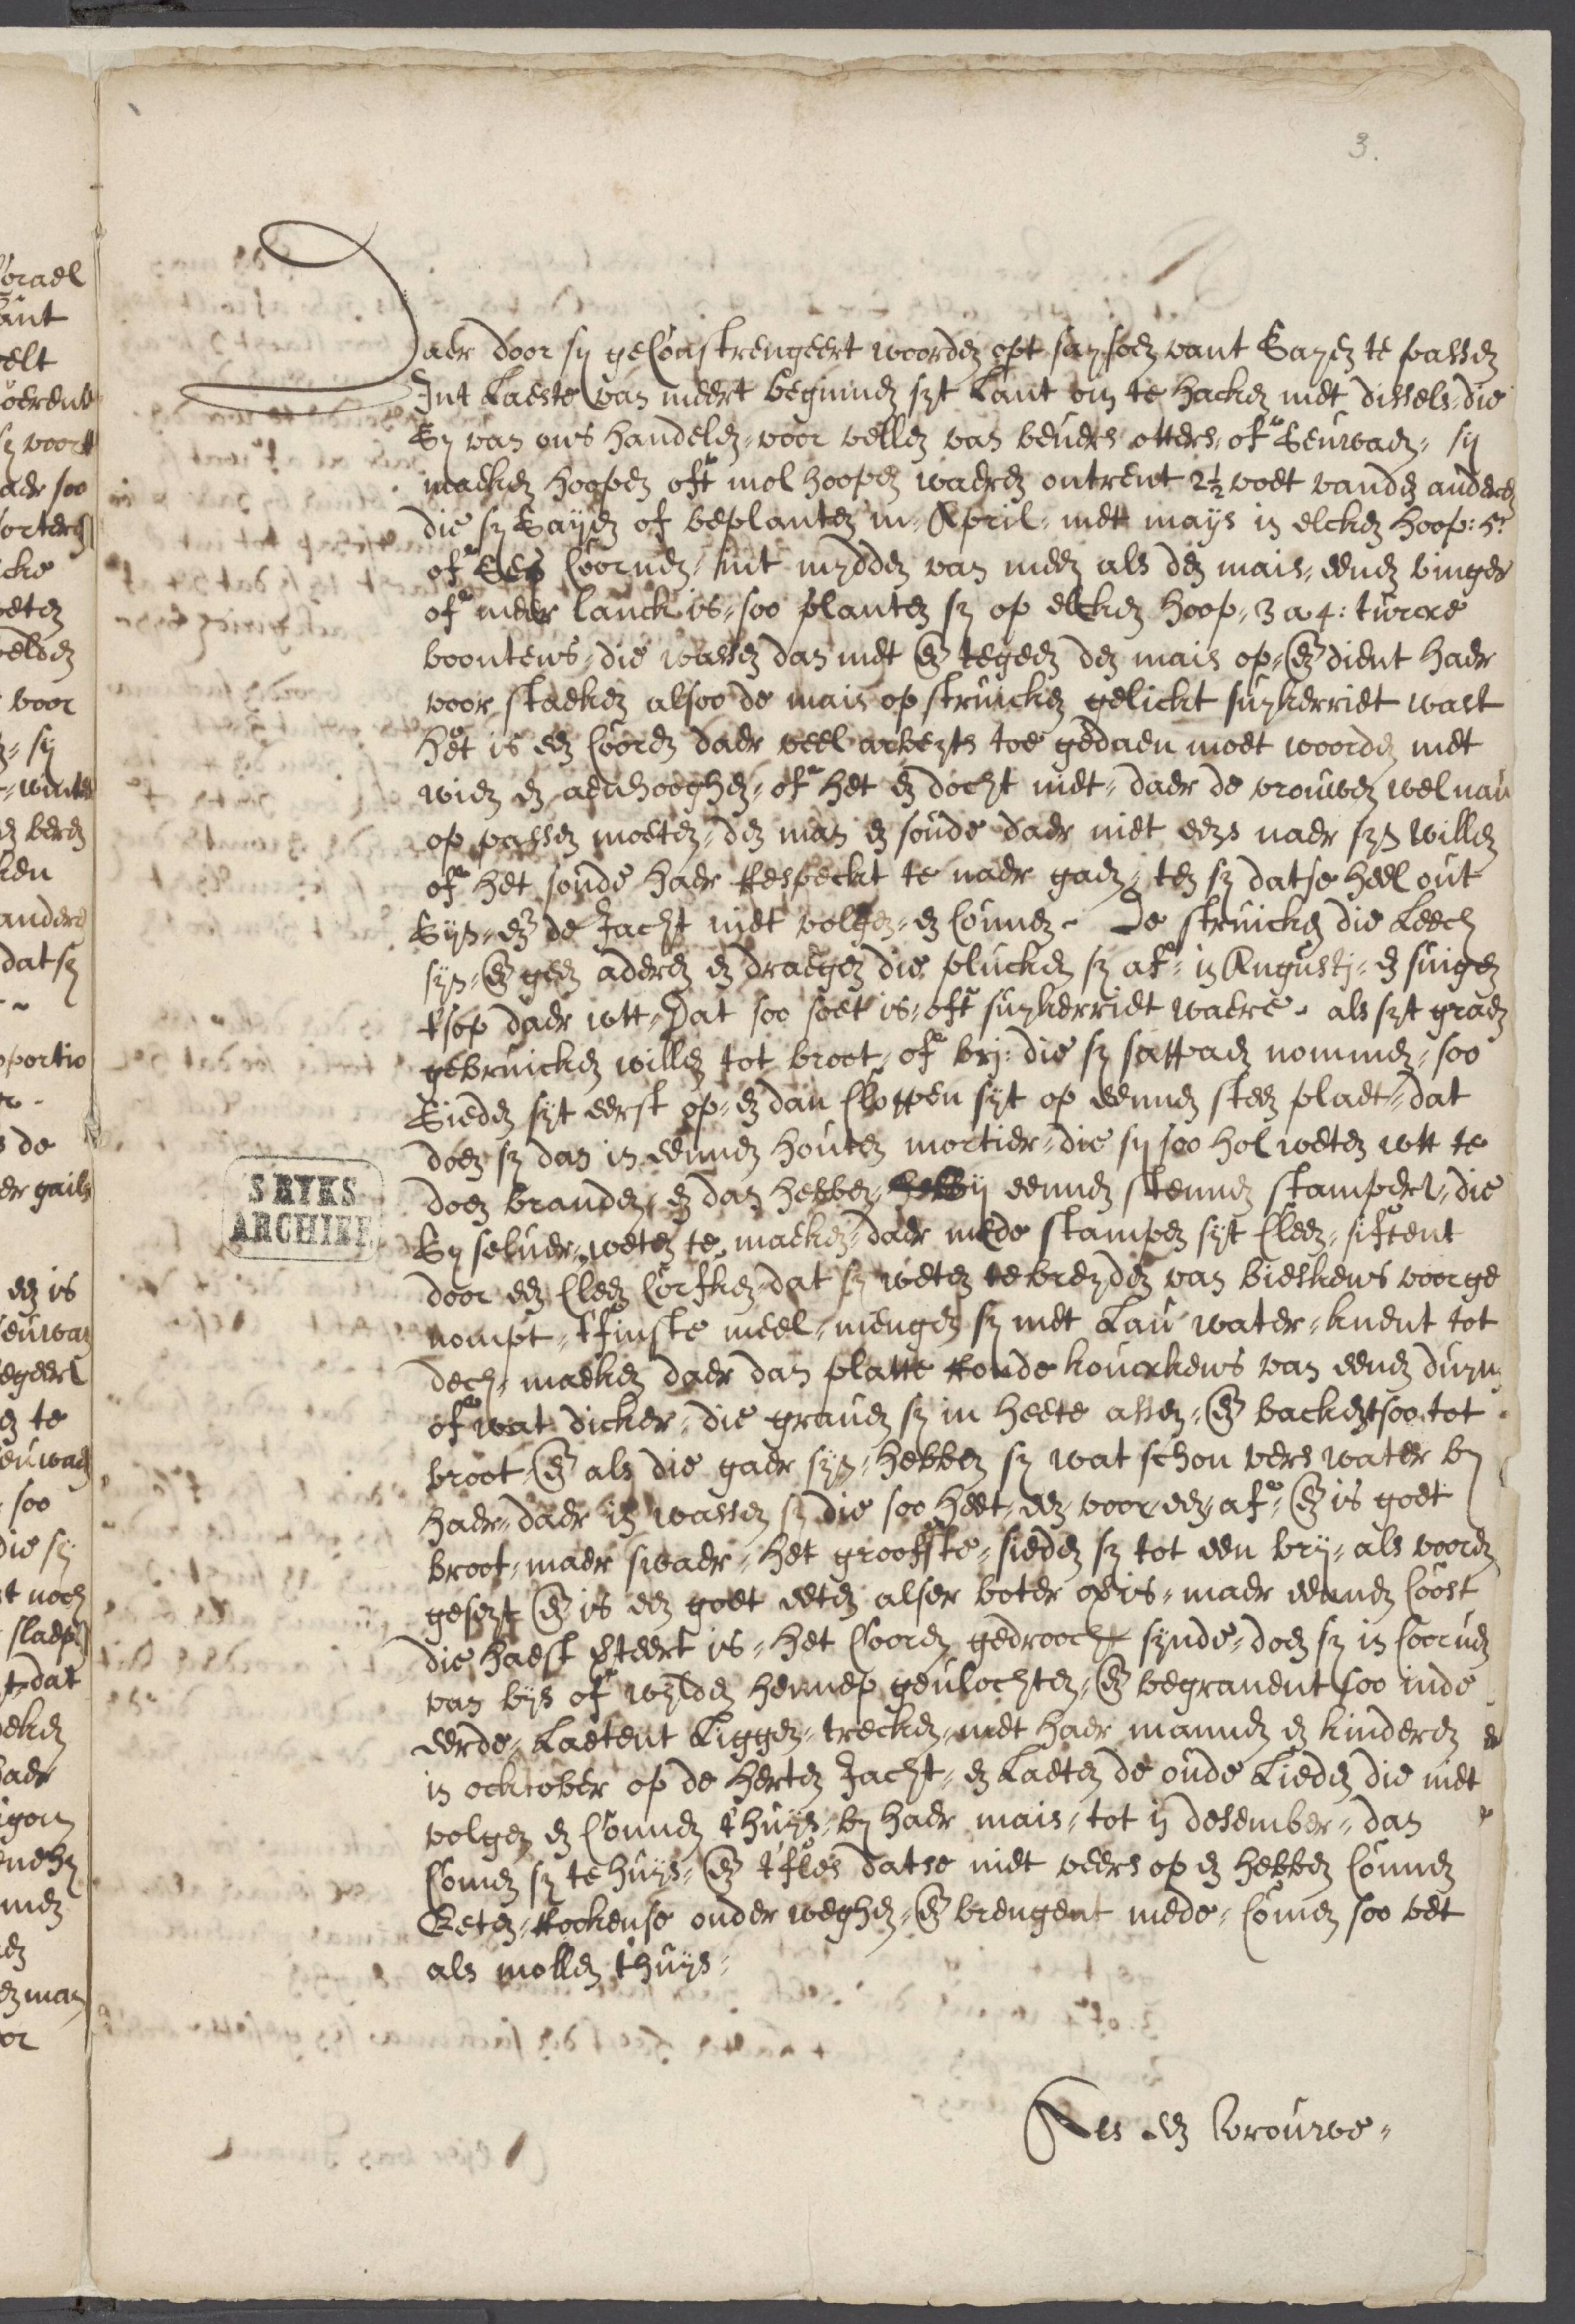 3.
Daer door sy geConstrengeert woorden opt saysoen vant Sayen te passen
Int Laeste van meert beginnen syt Lant om te hacken met dissels, die
Sy van ons handelen, voor vellen van bevers otters, oft Seuwan, sy
maeken hoopen oft mol hoopen waeren ontrent 2½ voet vanden anderen
die sy Saijen of beplanten in, April, met mays in elcken hoop: 5:
oft Ses Coornen, int mydden van meey als den mais, eenen vinger
oft meer lanck is, soo planten sy op elcken hoop, 3 a 4: turcxe
boontens, die wassen dan met en tegeen den mais op, en dient haer
voor staeken alsoo de mais op struicken gelickt suykerriet wast
Het is een Cooren daer veel arbeyts toe gedaen moet woorden met
wien en aenhooghen, oft het en docht niet, daer de vrouwen wel nau
op passen moeten, den man en soude daer niet eens naer syn willen
oft het soude haer Respeckt te naer gaen, ten sy datse heel out
Syn, en de Jacht niet volgen, en Connen. De struicken die Leech
syn, en geen aderen en draegen die plucken sy af, in Augusti, en suigen
tsop daer wtt, Dat soo soet is, oft suykerriet waere. als syt graen
gebruicken willen tot broot, oft bry: die sy sappaen nommen, soo
Sieden syt eerst op, en dan Cloppen syt op eennen steen plaet, dat
doen sy dan in eennen houten mortier, die sy soo hol weten wtt te
doen branden, en dan hebben, eennen stennen stamper, die
Sy selver, weten te maeken, daer mede stampen syt Cleen, siftent
door een Cleen Corfken, dat sy weten te breyden van bieskens voorge
nompt, tfinste meel, mengen sy met Lau water, knent tot
dech, maeken daer dan platte Ronde kouckens van eenen duym
oft wat dicker, die graven sy in heete assen, en backent soo tot
broot, en als die gaer syn, hebben sy wat schon vers water by
haer, daer in wassen sy die soo heet, een, voor, een, af, en is goet
broot, maer swaer, Het grooffste, sieden sy tot een bry, als vooren
geseyt en is een goet eeten alser boter op is, maer eennen Coost
die haest verteert is, Het Cooren gedroocht synde, doen sy in Coornen
van bys oft wylden hennep gevlochten, en begravent soo inde
eerde, Laetent Liggen, trecken, met haer mannen en kinderen
in ocktober op de herten Jacht, en Laeten de oude Lieden die niet
volgen en Connen thuys, by haer mais, tot in desember, dan
Comen sy te huys, en tfles datse niet veers op en hebben Connen
Eeten, Rockense onder weghen, en brengent mede, Comen soo vet
als mollen thuys,
Als een vrouwe,
S RYKS
ARCHIEF